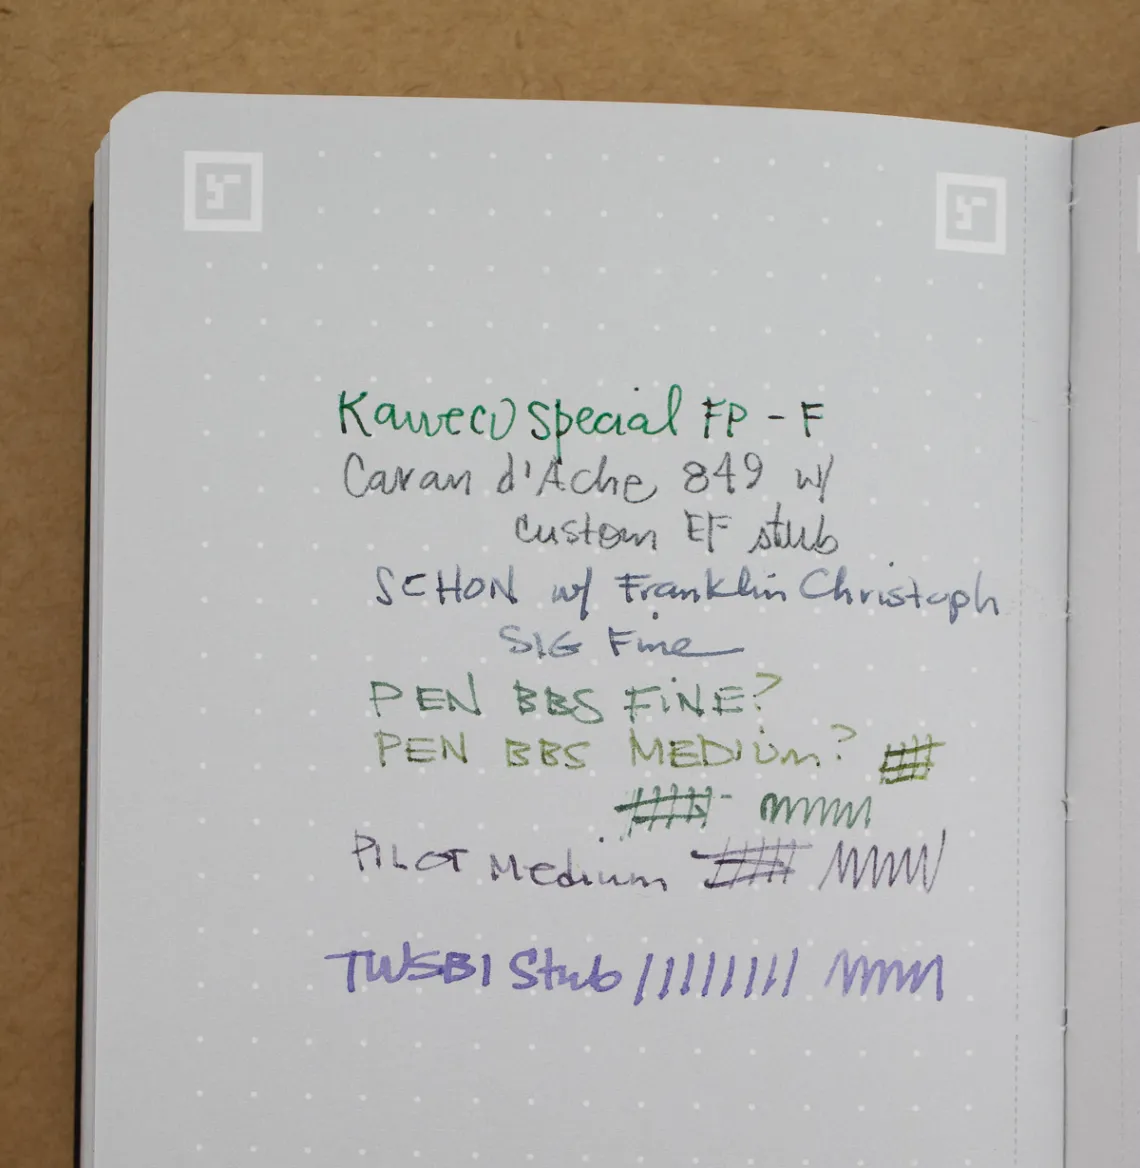 Kaweco Special FP - F
Caran d'Ache 849 w/
custom EF stub
SCHON w/ Franklin Christoph
SIG Fine
PEN BBS FINE?
PEN BBS MEDIUM?
PILOT Medium
TWSBI Stub